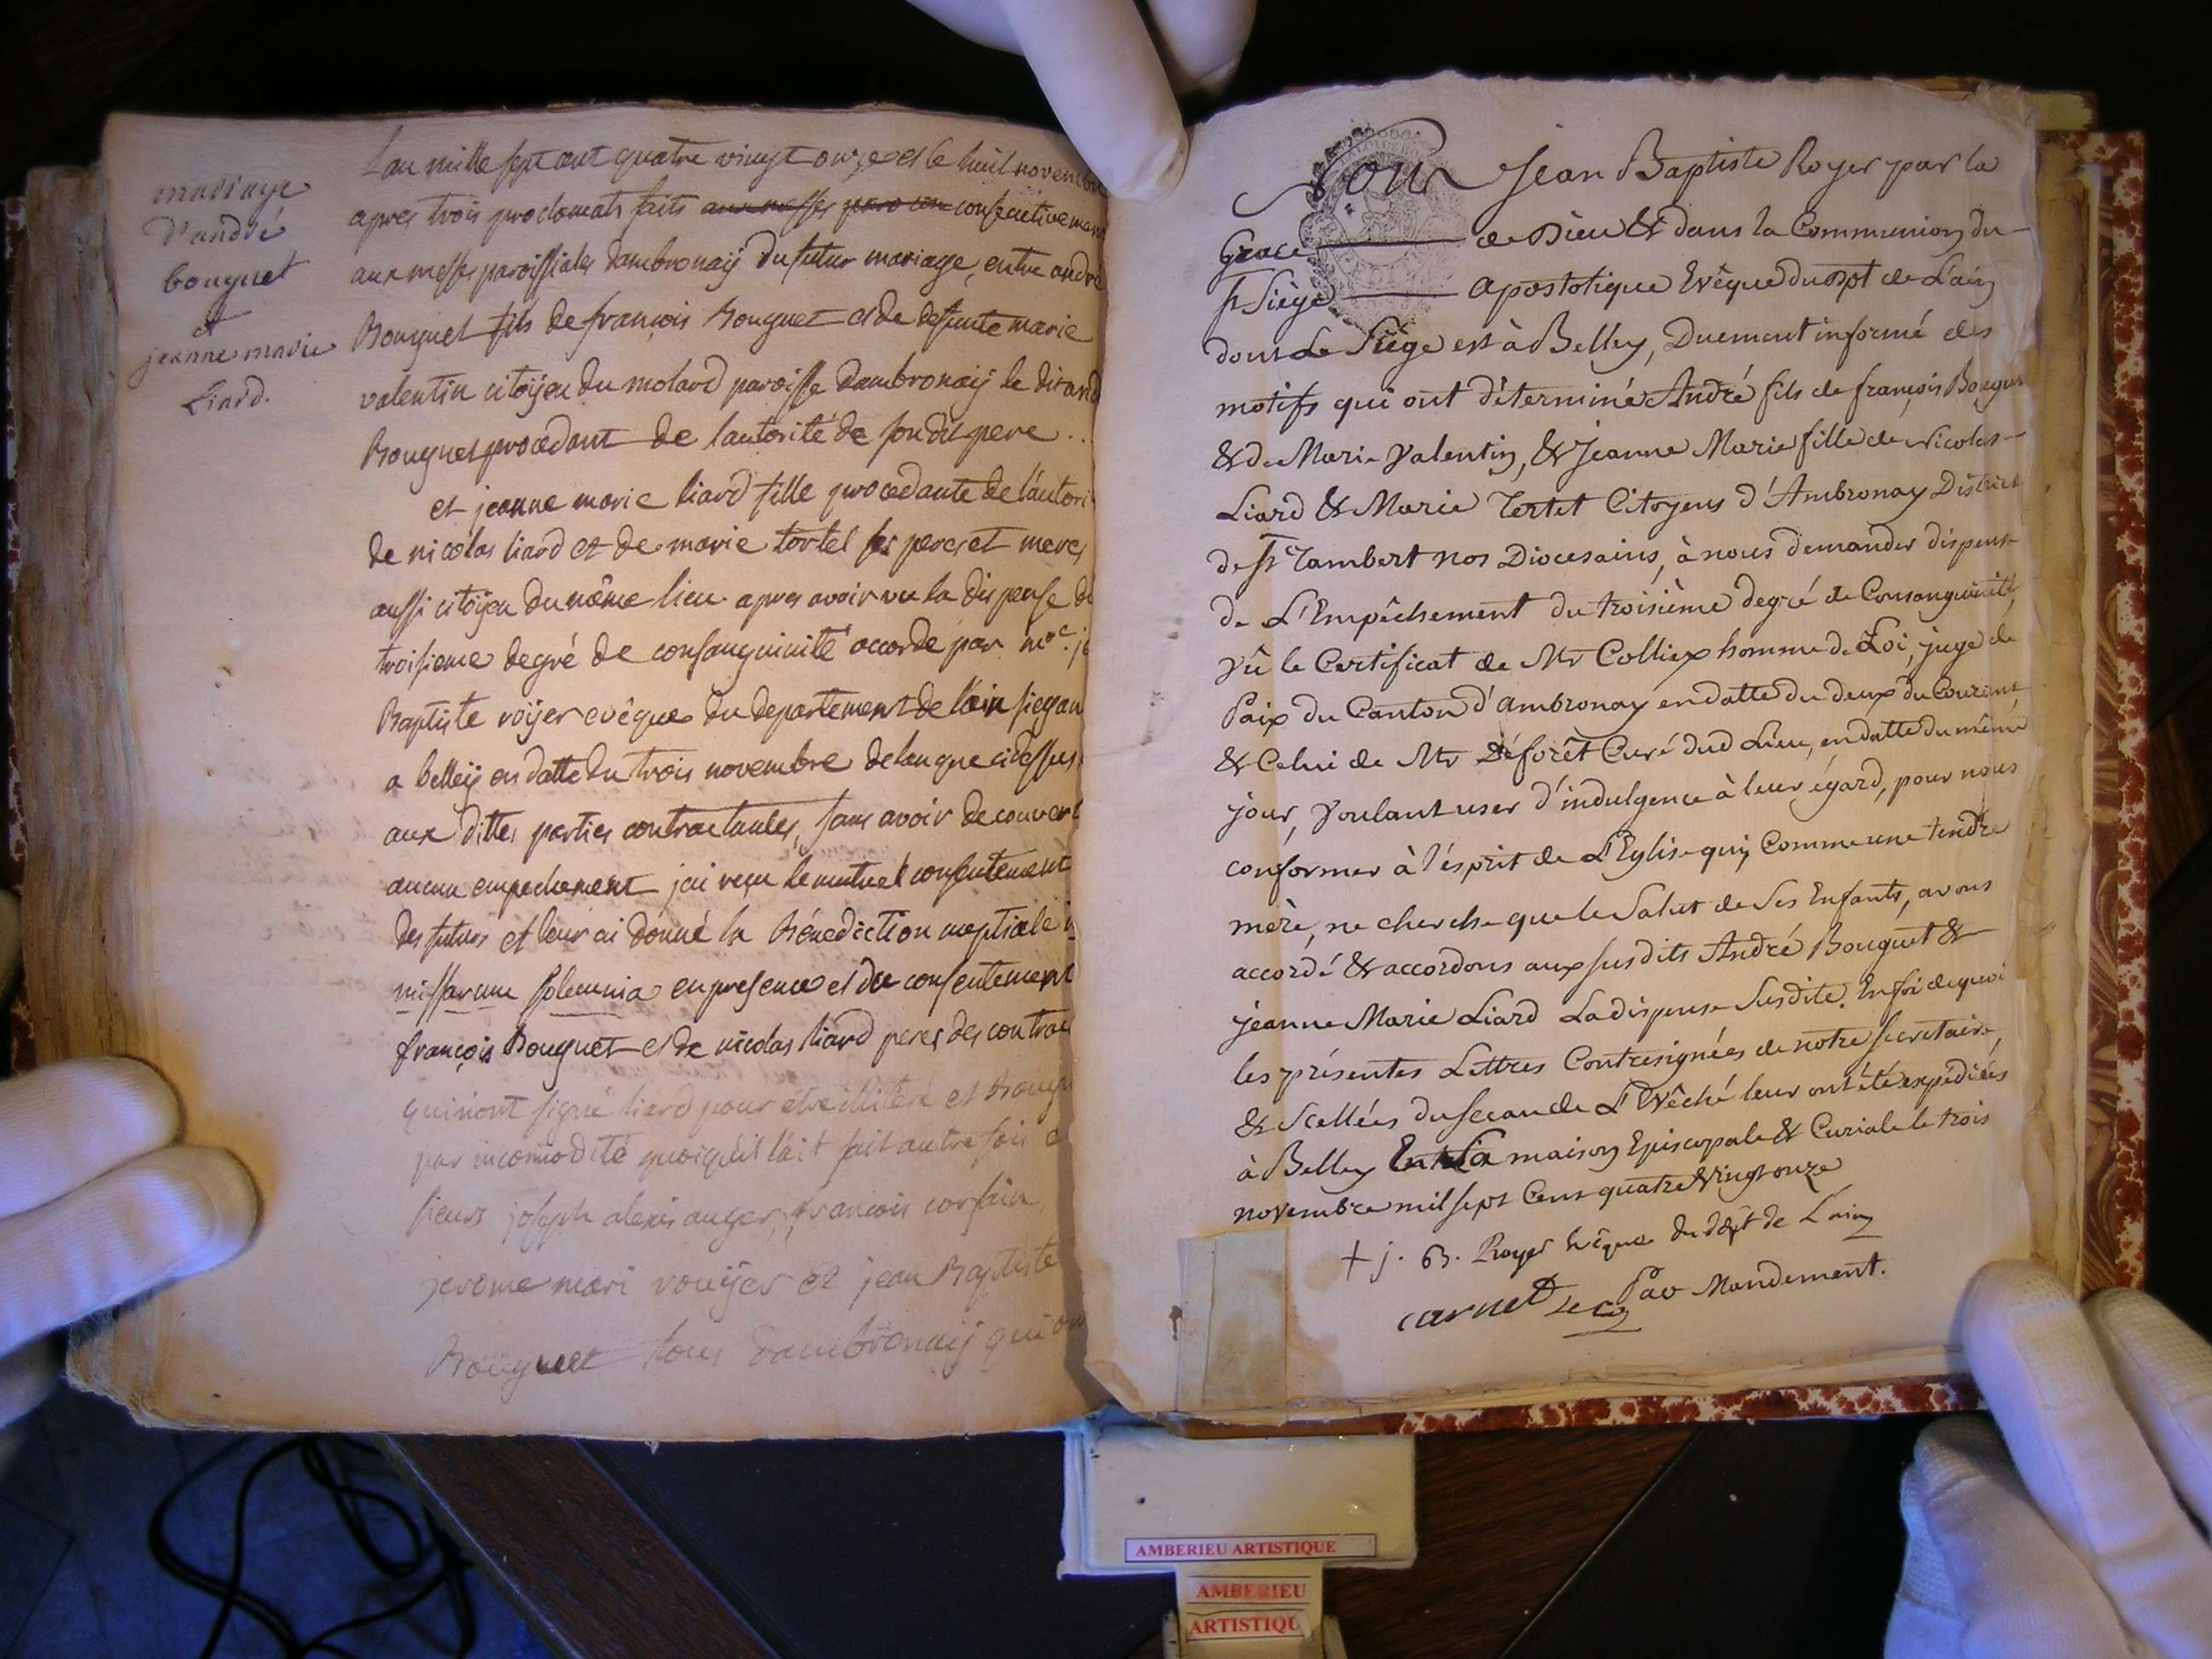 mariage
d'andré
bouguet
et
jeanne marie
Liard.
Lan mille sept cent quatre vingt onze et le huit novembre
apres trois proclomats faits aux messes paro con consecutivemen
aux messes paroissiales dambronaÿ du futur mariage, entre andre
Bouguet fils de françois Bouguet et de defunte marie
valentin citoÿen du molard paroisse dambronaÿ le dit and
Bouguet procedant de lautorité de son dit pere ..
et jeanne marie liard fille procedante de lautori
de nicolas liard et de marie tortel ses peres et meres
aussi citoÿen du même lieu apres avoir vu la dispense du
troisieme degré de consanguinité accordé par mre je
Baptiste roÿer evêque du departement de lain siegan
a belleÿ en datte du trois novembre de lan que cidessus
aux dittes parties contractantes, sans avoir decouvert
aucun empechement jai reçu le mutuel consentement
des futurs et leur ai donné la Bénediction nuptiale in
missarum solemnia en presence et du consentement
françois Bouguet et de nicolas liard peres des contrac
qui n'ont signé liard pour etre illiteré et Bougu
par incomodité quoiqu'il l'ait fait autre fois e
sieurs joseph alexis auger, francois corsain
jerome mari rouÿer et jean Baptiste
Bouguet tous dambronaÿ qui on
Nous Jean Baptiste Royer par la
Grace de Dieu & dans la Communion du
St Siège apostolique Evêque du Dpt de L'ain
dont Le Siège est à Belley, Duement informé des
motifs qui ont déterminé André fils de françois Bouguet
& de Marie Valentin, & Jeanne Marie fille de Nicolas
Liard & Marie Tertet Citoyens d'Ambronay District
de St Rambert nos Diocesains, à nous demander dispense
de L'Empêchement du troisième degré de Consanguinité,
Vû le Certificat de Mr Colliex homme de Loi, juge de
Paix du Canton d'ambronay en datte du deux du Courant
& Celui de Mr Déforêt Curé dud Lieu, en datte du même
jour, Voulant user d'indulgence à leur égard, pour nous
conformer à l'ésprit de L'Eglise qui, Comme une tendre
mère, ne cherche que le Salut de Ses Enfants, avons
accordé & accordons aux susdits André Bouguet &
jeanne Marie Liard La dispense Susdite. En foi de quoi
les présentes Lettres Contresignées de notre secretaire,
& Scellées du sceau de L'Evêché leur ont été expédiées
à Belley En La maison Episcopale & Curiale le trois
novembre mil sept Cent quatre Vingt onze
+ j. B. Royer Evêque du dépt de L'ain
Par Mandement.
Carnet
AMBERIEU ARTISTIQUE
AMBERIEU
ARTISTIQU